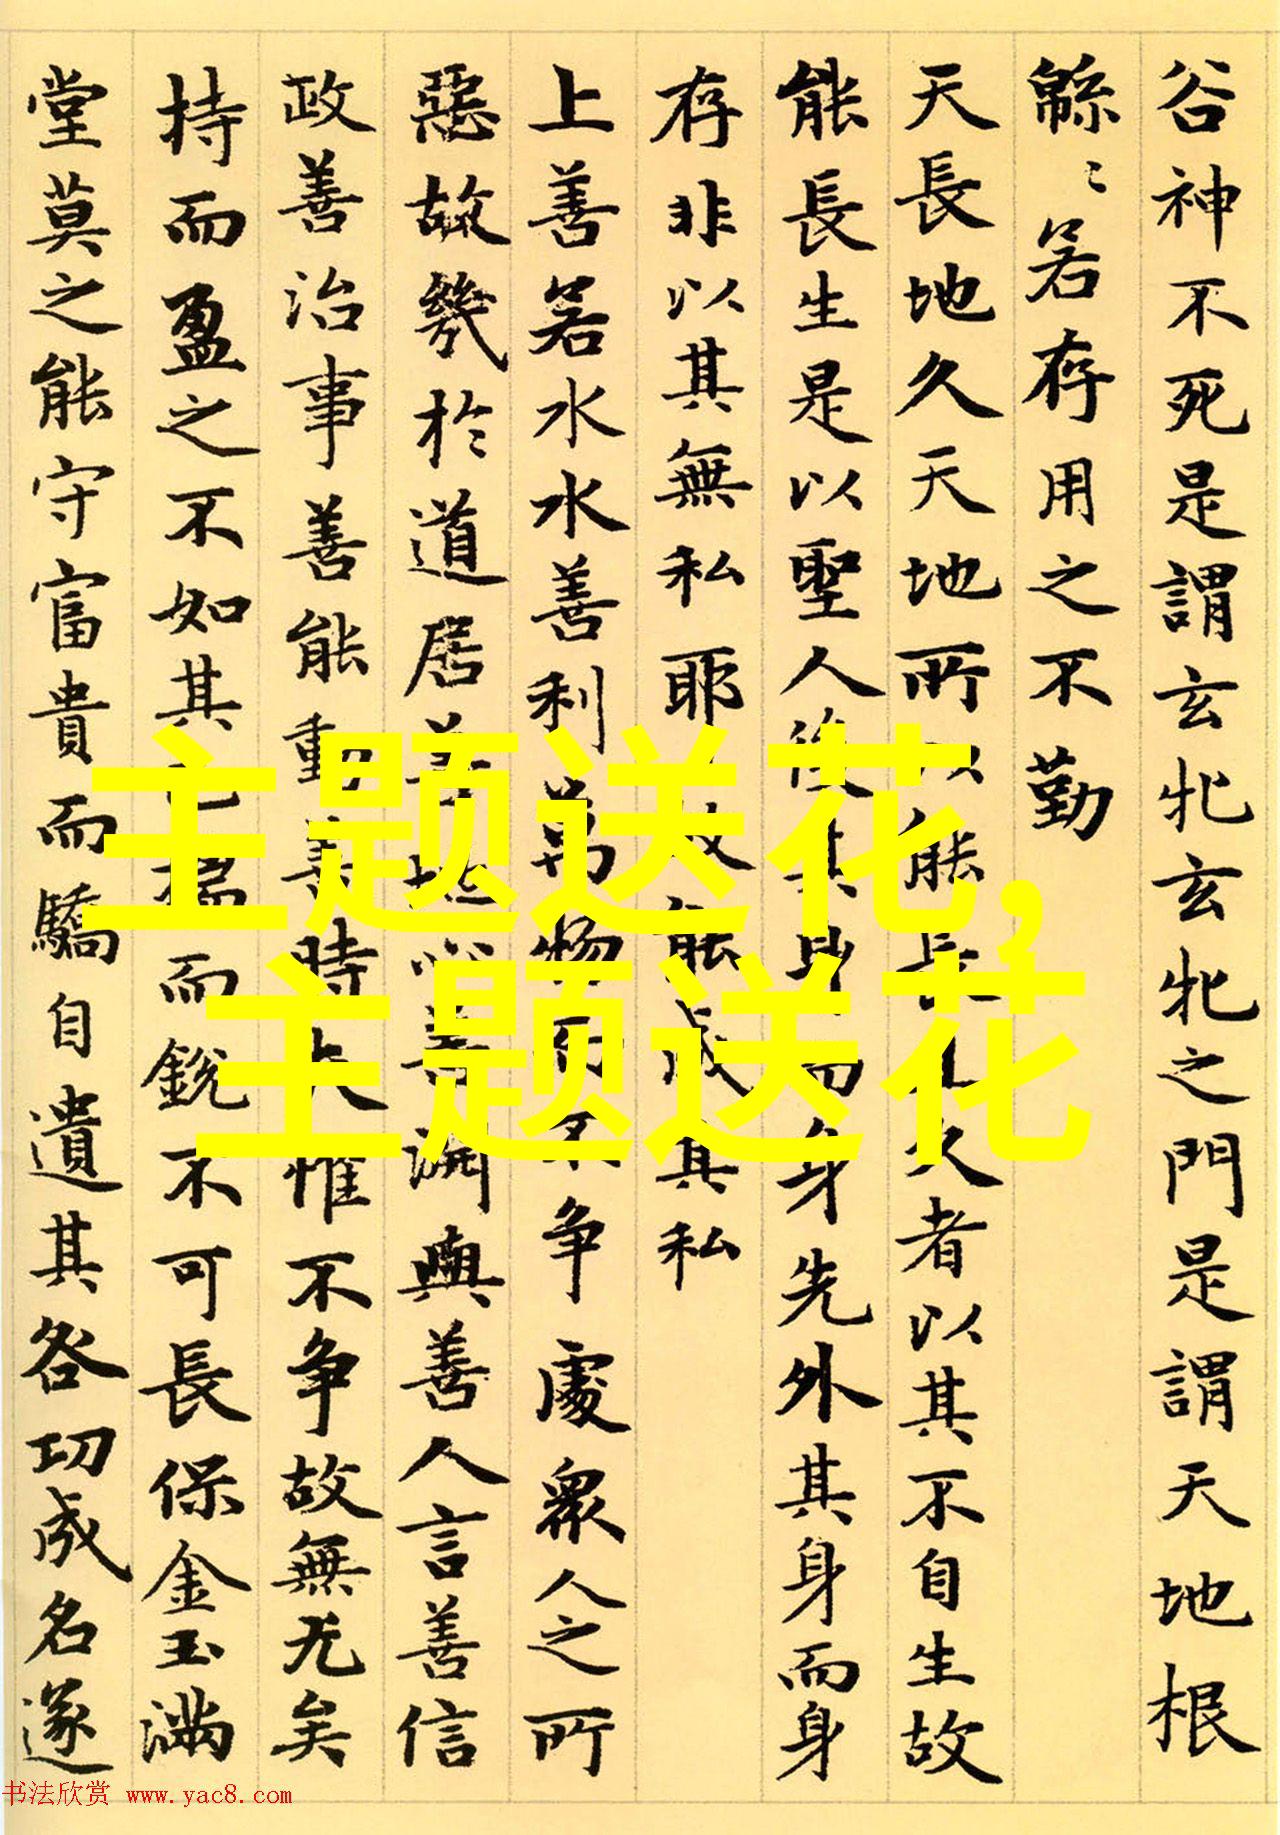 谷神不死是謂玄牝玄牝之門是謂天地根
緜〻若存用之不勤
天長地久天地所以能長且久者以其不自生故
能長生是以聖人後其身而身先外其身而身
存非以其無私耶故能成其私
上善若水水善利萬物而不争處衆人之所
惡故幾於道居善地心善渊與善人言善信
政善治事善能動善時夫惟不争故無尤矣
持而盈之不如其已揣而銳不可長保金玉滿
堂莫之能守富貴而驕自遺其咎功成名遂
主题送花,
主题送花
书法欣赏 www.yac8.com